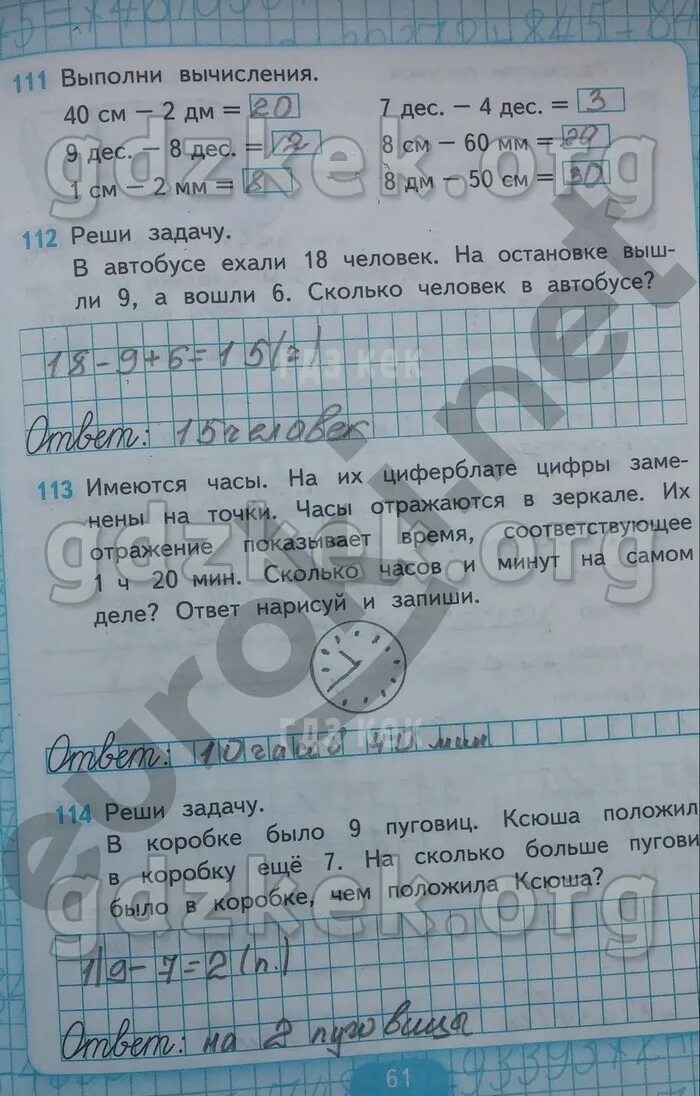 111 Выполни вычисления.
40 см – 2 дм = 20
7 дес. – 4 дес. = 3
9 дес. – 8 дес. =
8 см – 60 мм =
1 см – 2 мм = 8
8 дм – 50 см = 30
112 Реши задачу.
В автобусе ехали 18 человек. На остановке выш-
ли 9, а вошли 6. Сколько человек в автобусе?
18 – 9 + 6 = 15 (ч)
Ответ: 15 человек
113 Имеются часы. На их циферблате цифры заме-
нены на точки. Часы отражаются в зеркале. Их
отражение показывает время, соответствующее
1 ч 20 мин. Сколько часов и минут на самом
деле? Ответ нарисуй и запиши.
Ответ: 10 часов 40 мин
114 Реши задачу.
В коробке было 9 пуговиц. Ксюша положил
в коробку ещё 7. На сколько больше пугови
было в коробке, чем положила Ксюша?
1) 9 – 7 = 2 (п.)
Ответ: на 2 пуговицы
61
gdzkek.org
gdzkek.org
gdzkek.org
euroki.net
гдз кек
гдз кек